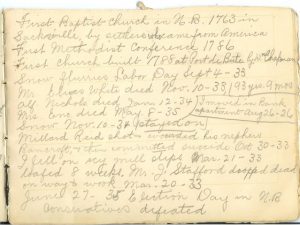 First Baptist Church in N.B. 1763 in
Sackville, by settlers who came from America
First Methodist Conference 1786
First Church built 1788 at Point de Bute by Mr Chapman
Snow flurries Labor Day Sept 4-33
Mr. Eliza White died Nov. 10-33 (93 yrs. 9 mos
Alf Nichols died Jan. 12-34 I moved in Bank
Mrs Eno died May 8-35 apartment Aug 26-36
Snow Nov. 10-34
Millard shot + wounded his nephew
Bancroft, + then committed suicide Oct 30-33
I fell on icy mill steps Mar. 21-33
loafed 8 weeks. Mr. J. Stafford dropped dead
on way to work Mar. 20-33
June 27-35 Election Day in N.B
Conservatives defeated